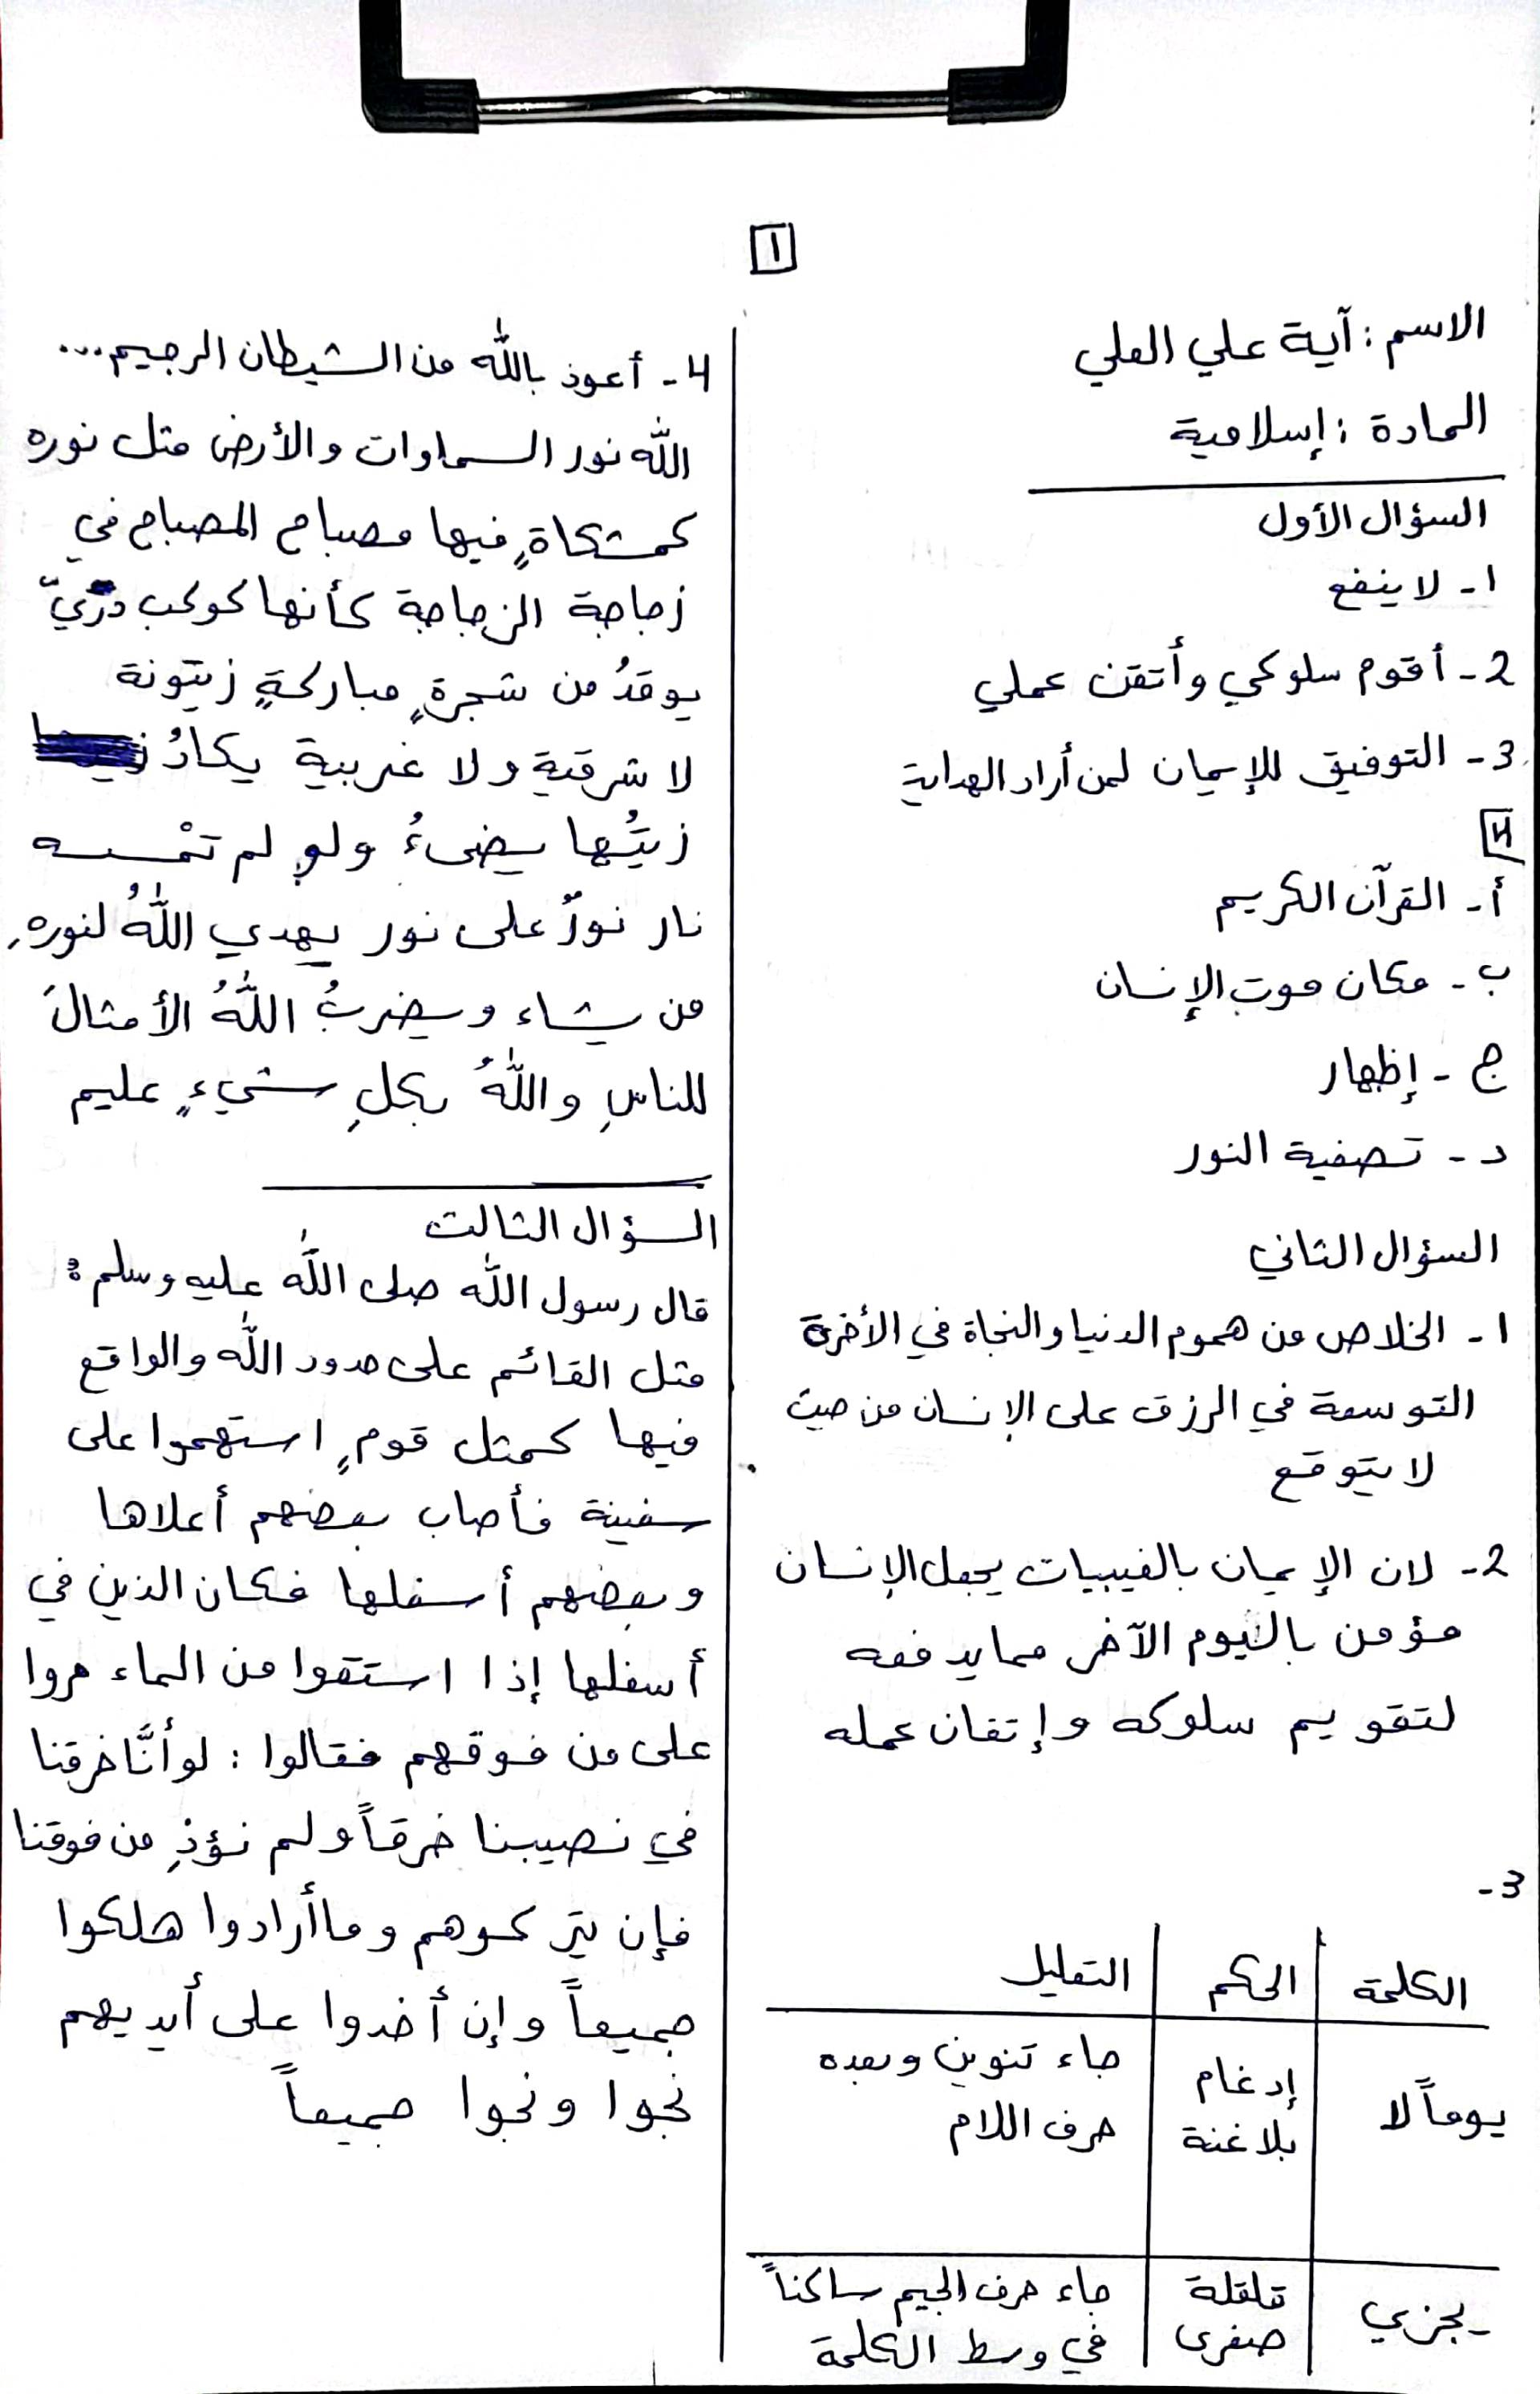 ١
الاسم : آية علي العلي
المادة : إسلامية
السؤال الأول
1- لا ينفع
2- أقوم سلوكي وأتقن عملي
3- التوفيق للإيمان لمن أراد الهداية
4
أ- القرآن الكريم
ب- مكان موت الإنسان
ج- إظهار
د- تصفية النور
السؤال الثاني
1- الخلاص من هموم الدنيا والنجاة في الأخرة
التوسعة في الرزق على الإنسان من حيث
لا يتوقع
2- لان الإيمان بالغيبيات يجعل الإنسان
مؤمن باليوم الآخر مما يدفعه
لتقويم سلوكه وإتقان عمله
3-
الكلمة الحكم التعليل
يوماً لا إدغام بلا غنة جاء تنوين وبعده
حرف اللام
يجزي قلقلة صغرى جاء حرف الجيم ساكناً
في وسط الكلمة
4- أعوذ بالله من الشيطان الرجيم...
الله نور السماوات والأرض مثل نوره
كمشكاةٍ فيها مصباح المصباح في
زجاجة الزجاجة كأنها كوكب درّيّ
يوقدُ من شجرةٍ مباركةٍ زيتونة
لا شرقية ولا غربية يكادُ
زيتُها يضيءُ ولو لم تمْسسه
نار نورٌ على نور يهدي اللهُ لنورهِ
من يشاء ويضربُ اللهُ الأمثالَ
للناسِ واللهُ بكلِ شيءٍ عليم
السؤال الثالث
قال رسول الله صلى الله عليه وسلم :
مثل القائم على حدود الله والواقع
فيها كمثل قومٍ استهموا على
سفينة فأصاب بعضهم أعلاها
وبعضهم أسفلها فكان الذين في
أسفلها إذا استقوا من الماء مروا
على من فوقهم فقالوا : لو أنَّا خرقنا
في نصيبنا خرقاً ولم نؤذِ من فوقنا
فإن يتركوهم وما أرادوا هلكوا
جميعاً وإن أخدوا على أيديهم
نجوا ونجوا جميعاً